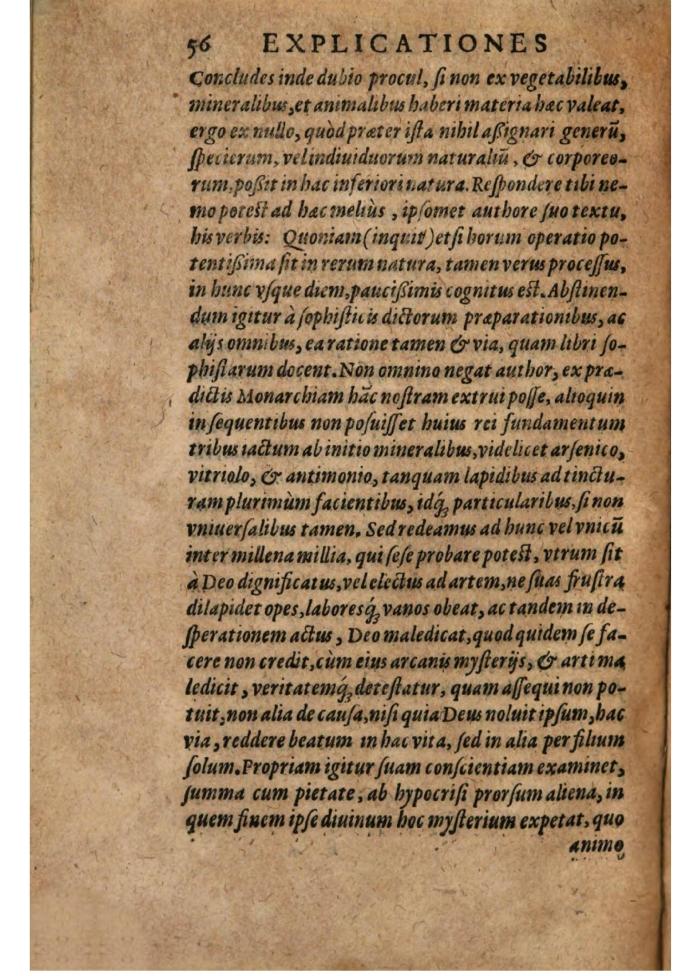 56 EXPLICATIONES
Concludes inde dubio procul, ſi non ex vegetabilibus,
mineralibus, et animalibus haberi materia hæc valeat,
ergo ex nullo, quòd præter iſta nihil aßignari generū,
ſpecierum, vel indiuiduorum naturaliū, & corporeo-
rum, poßit in hac inferiori natura. Reſpondere tibi ne-
mo poteſt ad hæc meliùs, ipſomet authore ſuo textu,
his verbis: Quoniam (inquit) etſi horum operatio po-
tentißima ſit in rerum natura, tamen verus proceſſus,
in hunc vſque diem, paucißimis cognitus eſt. Abſtinen-
dum igitur à ſophiſticis dictorum præparationibus, ac
alijs omnibus, ea ratione tamen & via, quam libri ſo-
phiſtarum docent. Non omnino negat author, ex præ-
dictis Monarchiam hāc noſtram extrui poſſe, alioquin
in ſequentibus non poſuiſſet huius rei fundamentum
tribus iactum ab initio mineralibus, videlicet arſenico,
vitriolo, & antimonio, tanquam lapidibus ad tinctu-
ram plurimùm facientibus, idq́; particularibus, ſi non
vniuerſalibus tamen. Sed redeamus ad hunc vel vnicū
inter millena millia, qui ſeſe probare poteſt, vtrum ſit
à Deo dignificatus, vel electus ad artem, ne ſuas fruſtra
dilapidet opes, laboresq́; vanos obeat, ac tandem in de-
ſperationem actus, Deo maledicat, quod quidem ſe fa-
cere non credit, cùm eius arcanis myſterijs, & arti ma
ledicit, veritatemq́; deteſtatur, quam aſſequi non po-
tuit, non alia de cauſa, niſi quia Deus noluit ipſum, hac
via, reddere beatum in hac vita, ſed in alia per filium
ſolum. Propriam igitur ſuam conſcientiam examinet,
ſumma cum pietate, ab hypocriſi prorſum aliena, in
quem finem ipſe diuinum hoc myſterium expetat, quo
animo